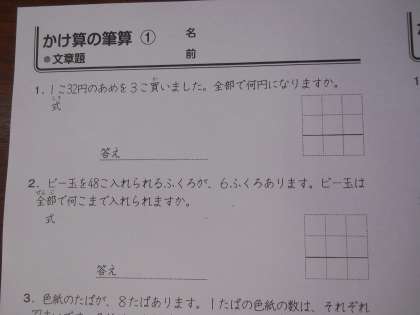 かけ算の筆算 ①
名
●文章題
前
1. 1こ32円のあめを3こ買いました。全部で何円になりますか。
式
答え
2. ビー玉を48こ入れられるふくろが、6ふくろあります。ビー玉は
全部で何こまで入れられますか。
式
答え
3. 色紙のたばが、8たばあります。1たばの色紙の数は、それぞれ